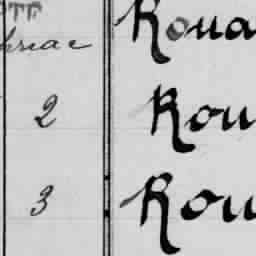 Roua
2 Rou
3 Rou